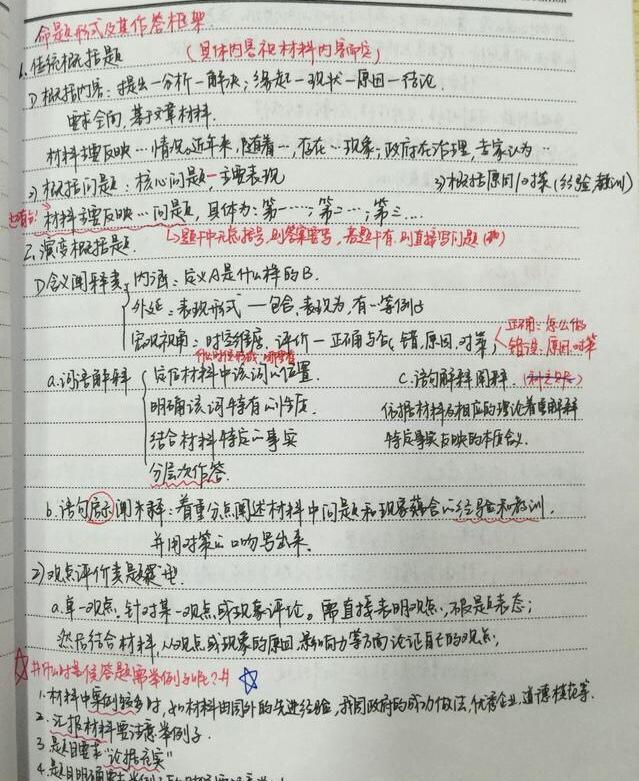 命题形式及其作答框架
1. 传统概括题 (具体内容视材料内容而定)
1) 概括内容：提出—分析—解决；缘起—现状—原因—结论.
要求全面, 基于文章材料.
材料主要反映…情况。近年来, 随着…, 存在…现象; 政府在治理, 专家认为…
2) 概括问题：核心问题—主要表现 3) 概括原因/对策 (经验教训)
材料主要反映…问题, 具体为：第一…; 第二…; 第三…
2. 演变概括题 题干中无括号, 则答案要写, 若题干有, 则直接写问题
1) 含义阐释类 内涵：定义A是什么样的B.
外延：表现形式—包含, 表现为, 有一等例子
宏观视角：时空维度, 评价—正确与否, 错, 原因, 对策 正确：怎么做
错误：原因, 对策
a. 词语解释 定位材料中该词的位置. c. 语句解释阐释.
明确该词特有的性质. 依据材料及相应的理论着重解释
结合材料特定的事实 特定事实反映的本质含义.
分层次作答.
b. 语句启示阐释：着重分点阐述材料中问题和现象蕴含的经验和教训,
并用对策的口吻写出来.
2) 观点评价类题
a. 单一观点. 针对某一观点或现象评论。需直接表明观点, 不限是表态;
然后结合材料, 从观点或现象的原因, 影响力等方面论证自己的观点;
☆#什么时候答题需举例子呢？# ☆
1. 材料中案例较多时, 如材料由国外的先进经验, 我国政府的成功做法, 优秀企业, 道德模范等.
2. 汇报材料要注意举例子.
3. 题目要求“论据充实”
4. 题目明确要求举例